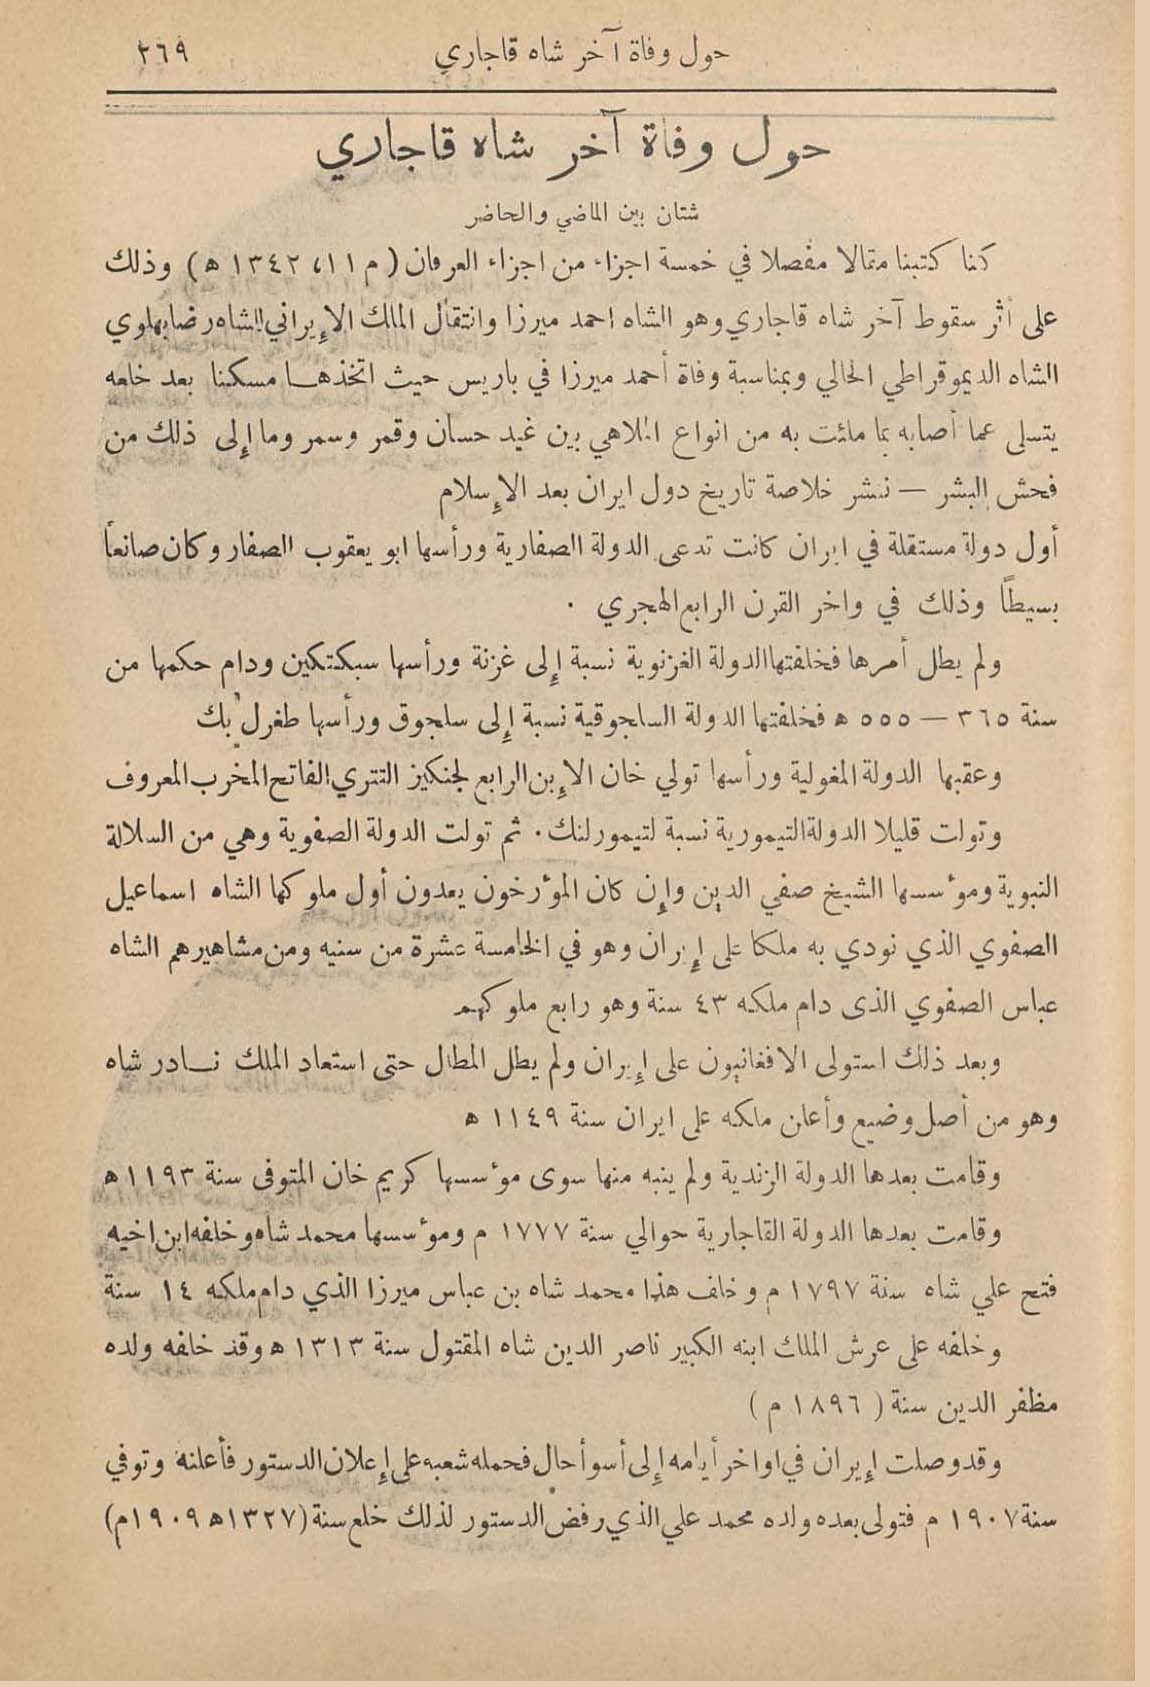 حول وفاة آخر شاه قاجاري
٣٦٩
حول وفاة آخر شاه قاجاري
شتان بين الماضي والحاضر
كنا كتبنا مقالا مفصلا في خمسة اجزاء من اجزاء العرفان ( م ١١، ١٣٤٢ ه ) وذلك
على أثر سقوط آخر شاه قاجاري وهو الشاه احمد ميرزا وانتقال الملك الإيراني الشاه رضا بهلوي
الشاه الديموقراطي الحالي وبمناسبة وفاة أحمد ميرزا في باريس حيث اتخذها مسكنا بعد خلعه
يتسلى عما أصابه بما ملئت به من انواع الملاهي بين غيد حسان وقمر وسمر وما إلى ذلك من
فحش البشر — ننشر خلاصة تاريخ دول ايران بعد الإسلام
أول دولة مستقلة في ايران كانت تدعى الدولة الصفارية ورأسها ابو يعقوب الصفار وكان صانعاً
بسيطاً وذلك في واخر القرن الرابع الهجري .
ولم يطل أمرها فخلفتها الدولة الغزنوية نسبة إلى غزنة ورأسها سبكتكين ودام حكمها من
سنة ٣٦٥ — ٥٥٥ ه فخلفتها الدولة السلجوقية نسبة إلى سلجوق ورأسها طغرل بك
وعقبها الدولة المغولية ورأسها تولي خان الإبن الرابع لجنكيز التتري الفاتح المخرب المعروف
وتولت قليلا الدولة التيمورية نسبة لتيمورلنك . ثم تولت الدولة الصفوية وهي من السلالة
النبوية ومؤسسها الشيخ صفي الدين وإن كان المؤرخون يعدون أول ملوكها الشاه اسماعيل
الصفوي الذي نودي به ملكا على إيران وهو في الخامسة عشرة من سنيه ومن مشاهيرهم الشاه
عباس الصفوي الذى دام ملكه ٤٣ سنة وهو رابع ملوكهم
وبعد ذلك استولى الافغانيون على إيران ولم يطل المطال حتى استعاد الملك نادر شاه
وهو من أصل وضيع وأعلن ملكه على ايران سنة ١١٤٩ ه
وقامت بعدها الدولة الزندية ولم ينبه منها سوى مؤسسها كريم خان المتوفى سنة ١١٩٣ ه
وقامت بعدها الدولة القاجارية حوالي سنة ١٧٧٧ م ومؤسسها محمد شاه وخلفه ابن اخيه
فتح علي شاه سنة ١٧٩٧ م وخلف هذا محمد شاه بن عباس ميرزا الذي دام ملكه ١٤ سنة
وخلفه على عرش الملك ابنه الكبير ناصر الدين شاه المقتول سنة ١٣١٣ ه وقد خلفه ولده
مظفر الدين سنة ( ١٨٩٦ م )
وقد وصلت إيران في اواخر أيامه إلى أسوأ حال فحمله شعبه على إعلان الدستور فأعلنه وتوفي
سنة ١٩٠٧ م فتولى بعده ولده محمد علي الذي رفض الدستور لذلك خلع سنة (١٣٢٧ ه ١٩٠٩ م)